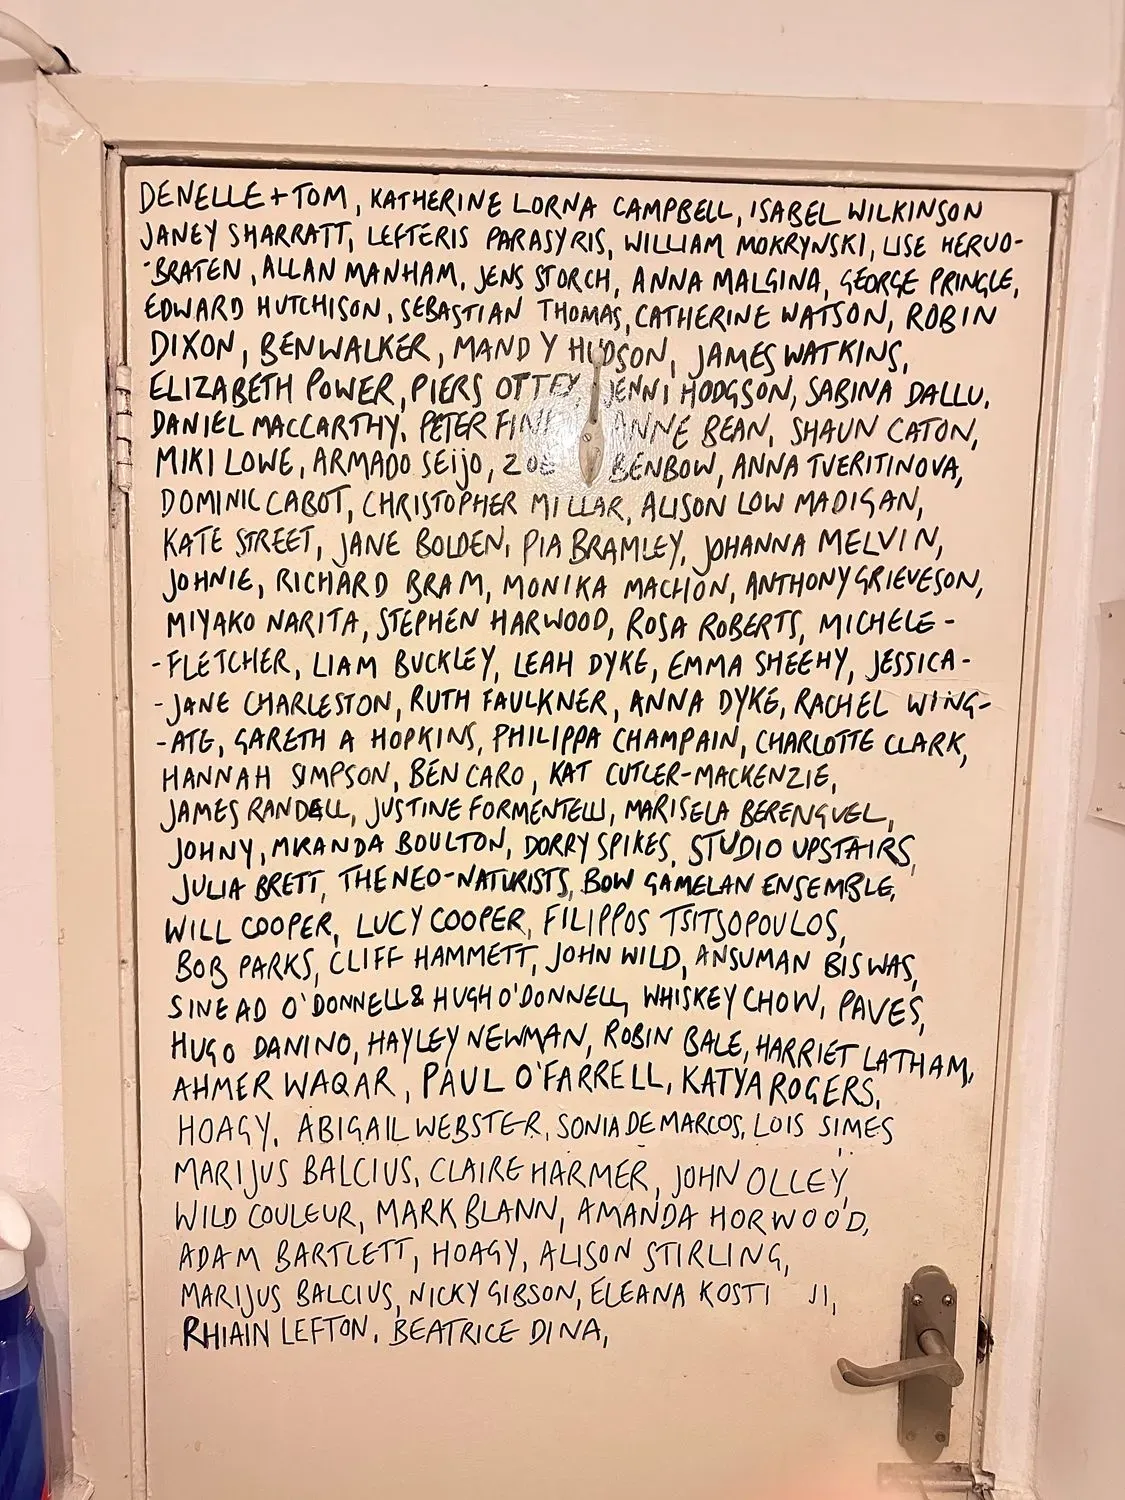 DENELLE + TOM, KATHERINE LORNA CAMPBELL, ISABEL WILKINSON
JANEY SHARRATT, LEFTERIS PARASYRIS, WILLIAM MOKRYNSKI, LISE HERUD-
-BRATEN, ALLAN MANHAM, JENS STORCH, ANNA MALGINA, GEORGE PRINGLE,
EDWARD HUTCHISON, SEBASTIAN THOMAS, CATHERINE WATSON, ROBIN
DIXON, BEN WALKER, MANDY HUDSON, JAMES WATKINS,
ELIZABETH POWER, PIERS OTTEY, JENNI HODGSON, SABINA DALLU,
DANIEL MACCARTHY, PETER ANNE BEAN, SHAUN CATON,
MIKI LOWE, ARMADO SEijo, ZOE BENBOW, ANNA TVERITINOVA,
DOMINIC CABOT, CHRISTOPHER MILLAR, ALISON LOW MADIGAN,
KATE STREET, JANE BOLDEN, PIA BRAMLEY, JOHANNA MELVIN,
JOHNIE, RICHARD BRAM, MONIKA MACHON, ANTHONY GRIEVESON,
MIYAKO NARITA, STEPHEN HARWOOD, ROSA ROBERTS, MICHELE -
- FLETCHER, LIAM BUCKLEY, LEAH DYKE, EMMA SHEEHY, JESSICA -
- JANE CHARLESTON, RUTH FAULKNER, ANNA DYKE, RACHEL WING-
-ATE, GARETH A HOPKINS, PHILIPPA CHAMPAIN, CHARLOTTE CLARK,
HANNAH SIMPSON, BEN CARO, KAT CUTLER-MACKENZIE,
JAMES RANDELL, JUSTINE FORMENTELLI, MARISELA BERENGUEL,
JOHNY, MIRANDA BOULTON, DORRY SPIKES, STUDIO UPSTAIRS,
JULIA BRETT, THE NEO-NATURISTS, BOW GAMELAN ENSEMBLE,
WILL COOPER, LUCY COOPER, FILIPPOS TSITSOPOULOS,
BOB PARKS, CLIFF HAMMETT, JOHN WILD, ANSUMAN BISWAS,
SINEAD O'DONNELL & HUGH O'DONNELL, WHISKEY CHOW, PAVES,
HUGO DANINO, HAYLEY NEWMAN, ROBIN BALE, HARRIET LATHAM,
AHMER WAQAR, PAUL O'FARRELL, KATYA ROGERS,
HOAGY, ABIGAIL WEBSTER, SONIA DE MARCOS, LOIS SIMES
MARIJUS BALCIUS, CLAIRE HARMER, JOHN OLLEY,
WILD COULEUR, MARK BLANN, AMANDA HORWOOD,
ADAM BARTLETT, HOAGY, ALISON STIRLING,
MARIJUS BALCIUS, NICKY GIBSON, ELEANA
RHIAIN LEFTON, BEATRICE DINA,